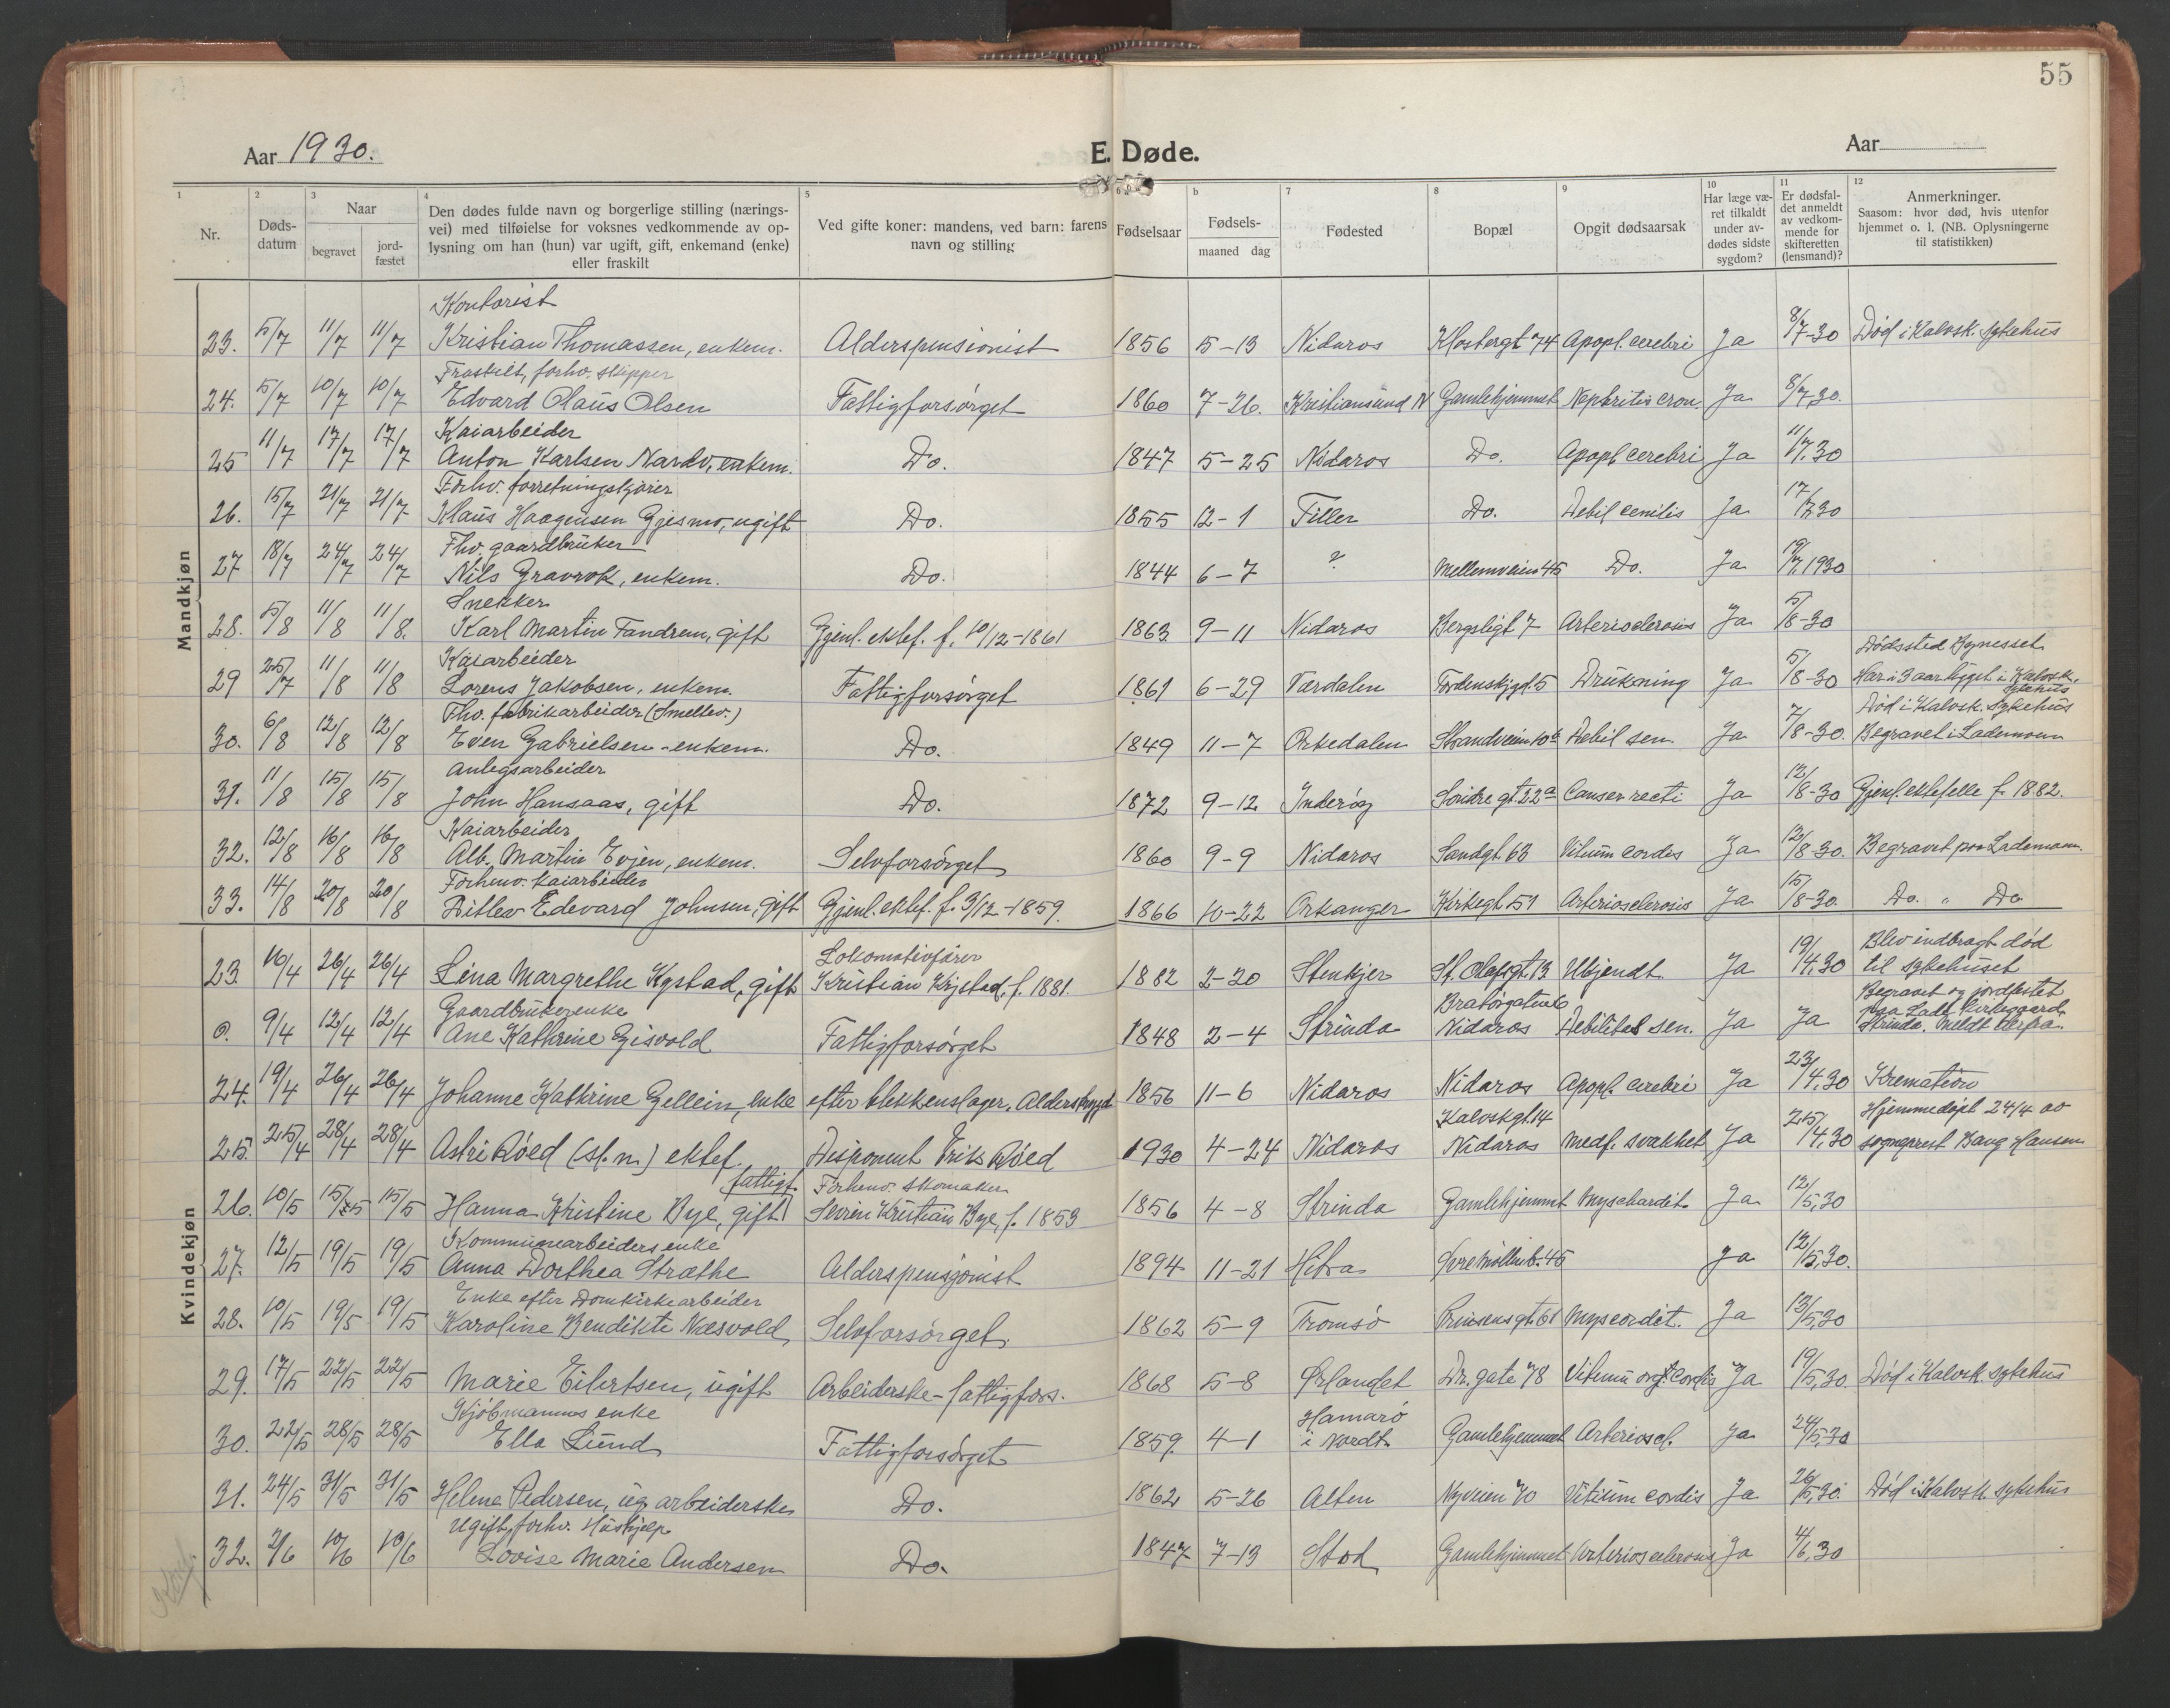 55
Aar 1930.
E. Døde.
Aar
1 2 3 4 5 6 a b 7 8 9 10 11 12
Nr. | Døds-datum | Naar begravet | jord-fæstet | Den dødes fulde navn og borgerlige stilling (nærings-vei) med tilføielse for voksnes vedkommende av op-lysning om han (hun) var ugift, gift, enkemand (enke) eller fraskilt | Ved gifte koner: mandens, ved barn: farens navn og stilling | Fødselsaar | Fødsels-maaned dag | Fødested | Bopæl | Opgit dødsaarsak | Har læge væ-ret tilkaldt under av-dødes sidste sygdom? | Er dødsfal-det anmeldt av vedkom-mende for skifteretten (lensmand)? | Anmerkninger. Saasom: hvor død, hvis utenfor hjemmet o. l. (NB. Oplysningerne til statistikken)
Mandkjøn
Kontorist
23. 5/7 11/7 11/7 Kristian Thomassen, enkem. Alderspensionist 1856 5-13 Nidaros Klostergt 74 Apopl. cerebri Ja 8/7-30 Død i Kalvsk. sykehus
Fraskilt, forhv. skipper
24. 5/7 10/7 10/7 Edvard Olaus Olsen Fattigforsørget 1860 7-26. Kristiansund N Gamlehjemmet Nephritis cron. Ja 8/7,30.
Kaiarbeider
25 11/7 17/7 17/7 Anton Karlsen Nardo, enkem. Do. 1847 5-25 Nidaros Do. Apopl cerebri Ja 11/7,30
Forhv. forretningskjører
26. 15/7 21/7 21/7 Klaus Haagensen Gjesmo, ugift Do. 1855 12-1 Tiller Do. Debil cenilis Ja 17/7,30
Fhv. gaardbruker
27 18/7 24/7 24/7 Nils Gravrok, enkem. Do. 1844 6-7 ? Mellemveien 45 Do. Ja 19/7,1930
Snekker
28. 5/8 11/8 11/8. Karl Martin Tandrem, gift Gjenl. ektef. f. 10/12-1861 1863 9-11 Nidaros Bergsligt 7 Arteriosclerosis Ja 5/8-30
Kaiarbeider Dødssted Bynesset
29 25/7 11/8 11/8 Lorens Jakobsen, enkem. Fattigforsørget 1861 6-29 Værdalen Tordenskjgt. 5 Drukning Ja 5/8-30 Har i 3 aar ligget i Kalvsk. sykehus
Fhv. fabrikarbeider (Smeltev.) Død i Kalvsk. sykehus
30. 6/8 12/8 12/8 Even Gabrielsen - enkem. Do. 1849 11-7 Orkedalen Strandveien 10b Debil sen. Ja 7/8-30. Begravet i Lademoen
Anlegsarbeider
31. 11/8 15/8 15/8 John Hansaas, gift Do. 1872 9-12 Inderøy Søndre gt. 22a Canser recti Ja 12/8-30 Gjenl. ektefelle f. 1882.
Kaiarbeider
32. 12/8 16/8 16/8 Alb. Martin Evjen, enkem. Selvforsørget 1860 9-9 Nidaros Sandgt. 63 Vitium cordis Ja 12/8-30. Begravet paa Lademoen.
Forhenv. kaiarbeider
33. 14/8 20/8 20/8 Ditlev Edevard Johnsen, gift Gjenl. ektef. f. 3/12-1859. 1866 10-22 Orkanger Kirkegt 51 Arteriosclerosis Ja 15/8-30. Do. " Do
Kvindekjøn
Lokomotivfører Blev indbragt død
23. 16/4 26/4 26/4 Lina Margrethe Kystad, gift Kristian Kystad, f. 1881. 1882 2-20 Stenkjer St. Olafsgt. 13 Ubjendt Ja 19/4,30 til sykehuset
Gaardbrukerenke Bratørgaten 6 Begravet og jordfestet
0. 9/4 12/4 12/4 Ane Kathrine Gisvold Fattigforsørget 1848 2-4 Strinda Nidaros Debilitas sen. Ja Ja paa Lade kirkegaard, Strinda. Meldt herfra.
24. 19/4 26/4 26/4 Johanne Kathrine Gellein, enke efter blekkenslager, Alderstrygd 1856 11-6 Nidaros Nidaros Apopl. cerebri Ja 23/4,30 Kremation
Kalvskgt. 14 Hjemmedøpt 24/4 av
25. 25/4 28/4 28/4 Astri Røed (sl. n.) ektef. Disponent Erik Røed 1930 4-24 Nidaros Nidaros Medf. svakhet Ja 25/4,30 sogneprest Baug Hansen
fattigf. Forhenv. skomaker
26. 10/5 15/5 15/5 Hanna Kristine Bye, gift Søren Kristian Bye, f. 1853 1856 4-8 Strinda Gamlehjemmet Myschardit. Ja 12/5,30
Kommunearbeiders enke
27. 12/5 19/5 19/5 Anna Dorthea Stræthe Alderspensjonist 1894 11-21 Hitra Øvre Møllenb. 45 Ja 12/5,30.
Enke efter Domkirkearbeider
28. 10/5 19/5 19/5 Karoline Bendikte Næsvold Selvforsørget. 1862 5-9 Tromsø Prinsensgt. 61 Myscordit. Ja 13/5,30
29. 17/5 22/5 22/5 Marie Eilertsen, ugift Arbeiderske - fattigfors. 1868 5-8 Ørlandet Dr. gate 78 Vitium org. cordis Ja 19/5,30. Død i Kalvsk. sykehus
Kjøbmanns enke Hamarø
30. 22/5 28/5 28/5 Ella Lund Fattigforsørget 1859 4-1 i Nordl. Gamlehjemmet Arterioscl. Ja 24/5,30
31. 24/5 31/5 31/5 Helena Pedersen, ug. arbeiderske Do. 1862 5-26 Alten Nyveien 70 Vitium cordis Ja 26/5,30. Død i Kalvsk. sykehus
Ugift, forhv. Hushjelp
32. 2/6 10/6 10/6 Lovise Marie Andersen Do. 1847 7-13 Stod Gamlehjemmet Arterioscelerosis Ja 4/6,30